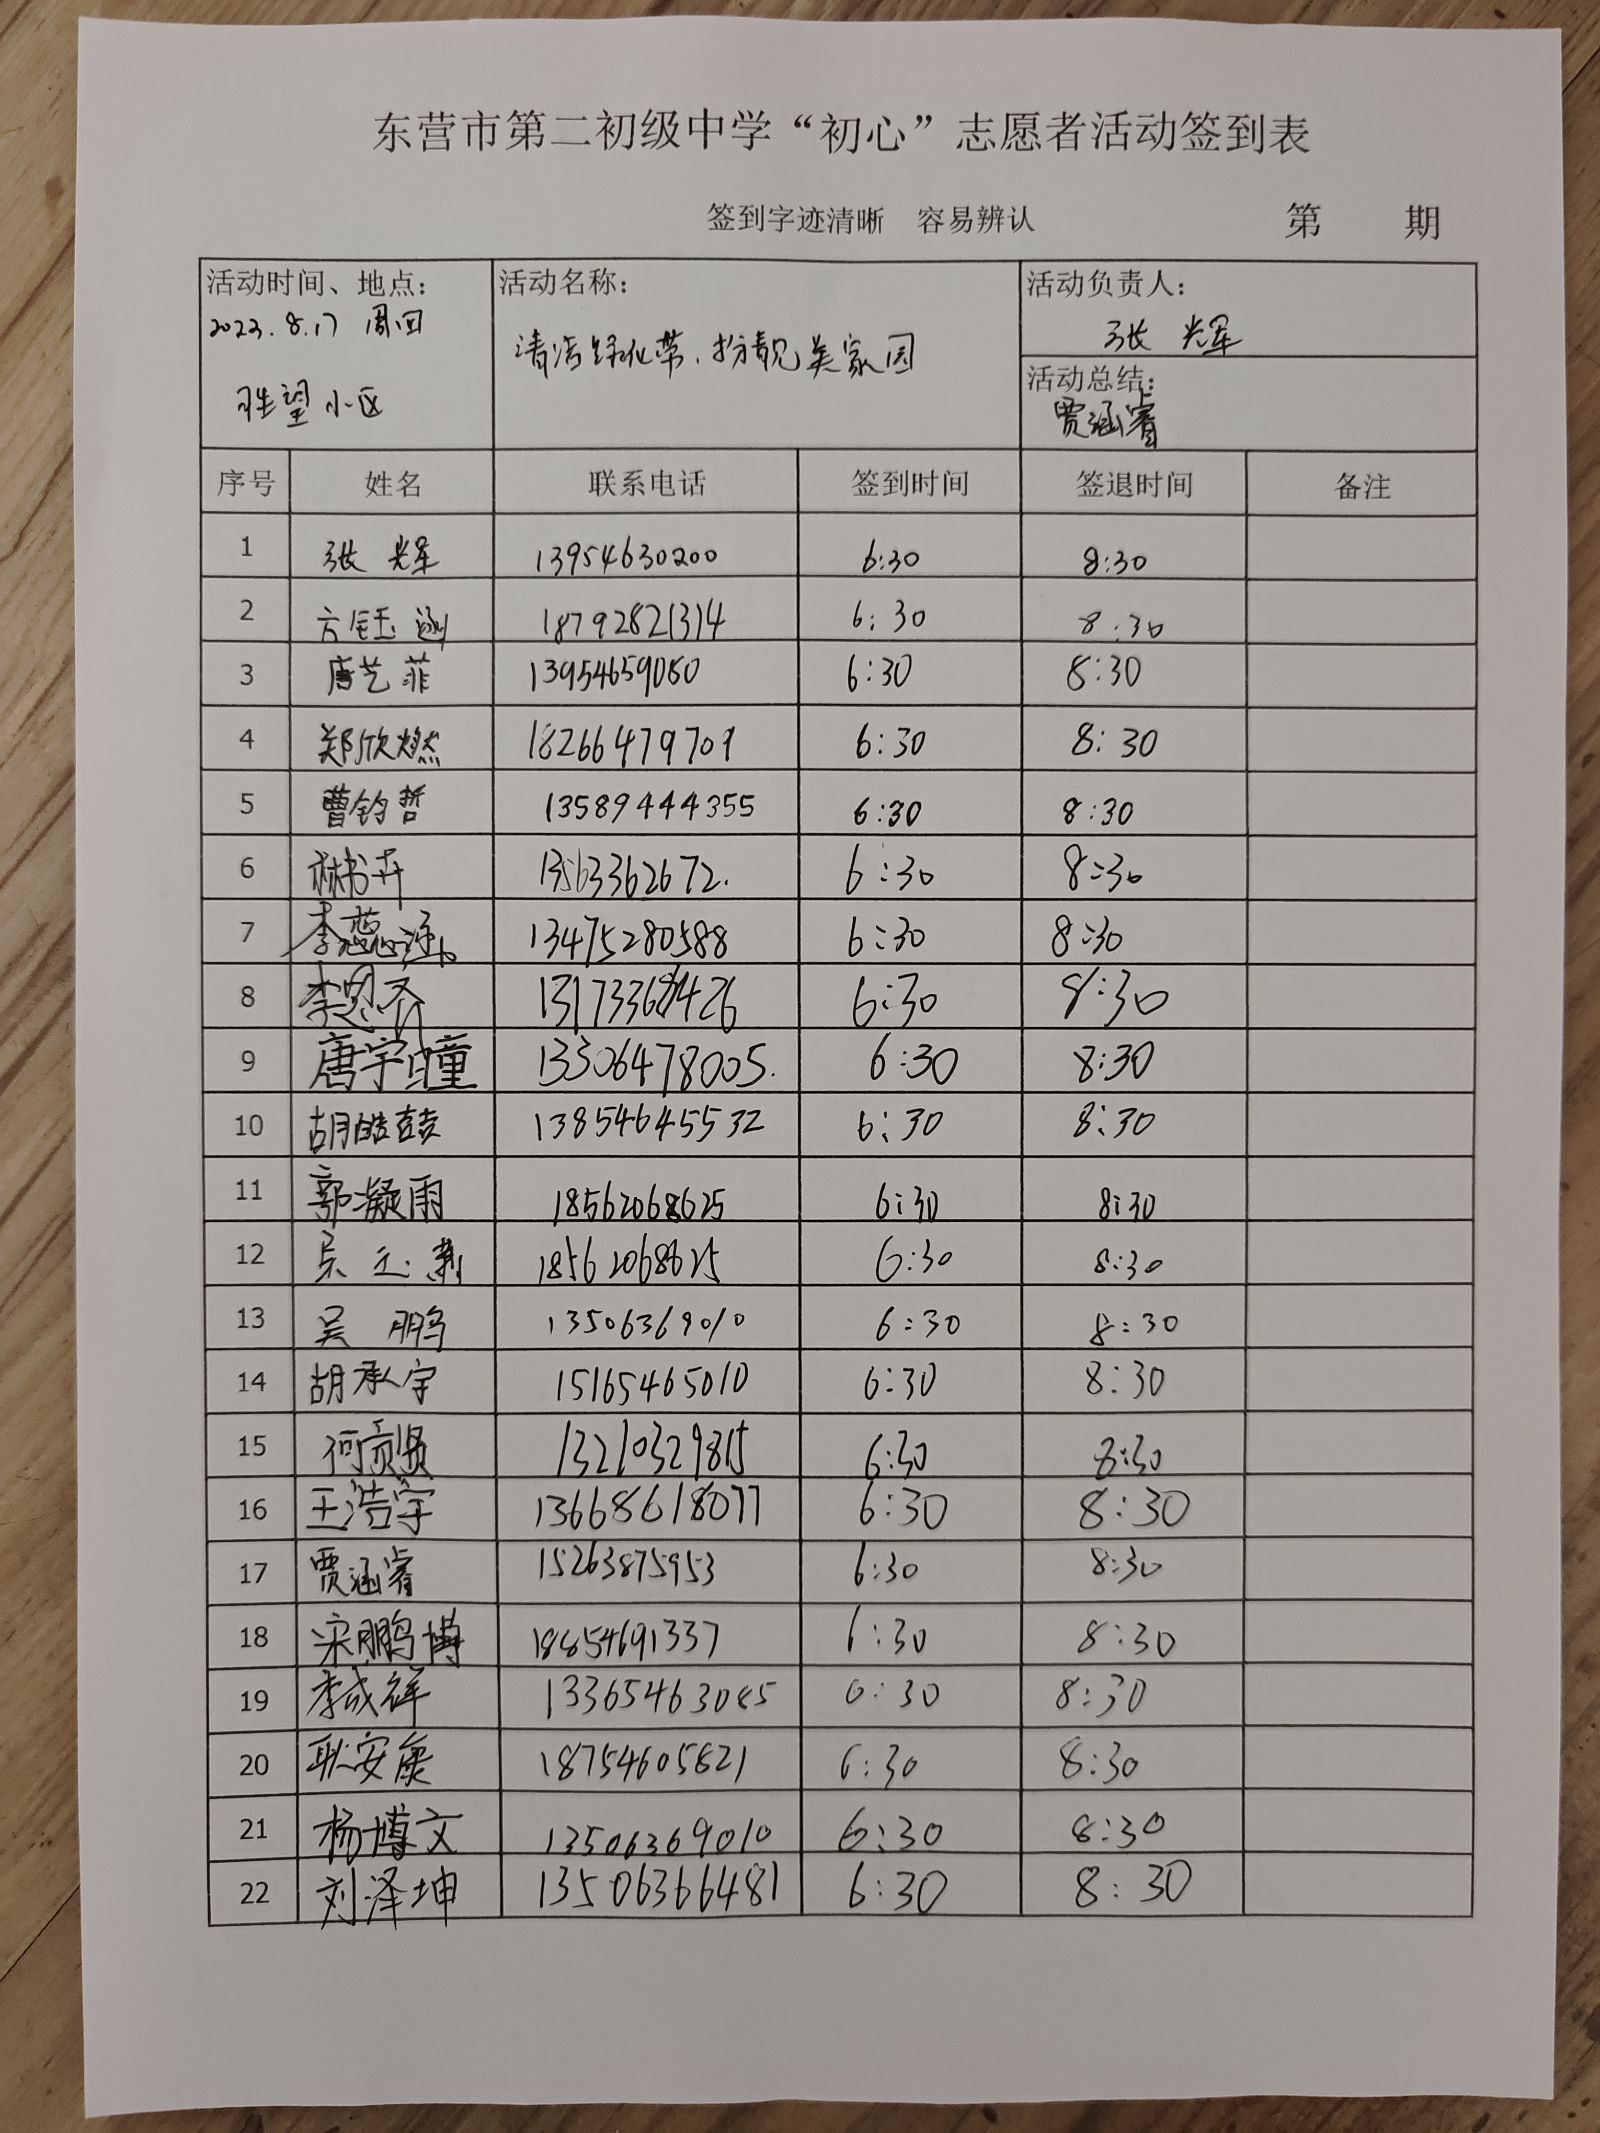 东营市第二初级中学“初心”志愿者活动签到表
签到字迹清晰 容易辨认 第 期
活动时间、地点: 活动名称: 活动负责人:
2023.8.17 周四 清洁绿化带,扮靓美家园 张 辉
胜望小区 活动总结:
贾涵睿
序号 姓名 联系电话 签到时间 签退时间 备注
1 张 辉 13954630200 6:30 8:30
2 方钰涵 18792821314 6:30 8:30
3 唐艺菲 13954659080 6:30 8:30
4 郑欣燃 18266479709 6:30 8:30
5 曹钧哲 13589444355 6:30 8:30
6 林书卉 13563362672. 6:30 8:30
7 李蕊涵 13475280588 6:30 8:30
8 李思齐 13173368426 6:30 8:30
9 唐宇曈 13306478005. 6:30 8:30
10 胡皓喆 13854645532 6:30 8:30
11 郭凝雨 18562068625 6:30 8:30
12 吴 18562068625 6:30 8:30
13 吴 鹏 13506369010 6:30 8:30
14 胡承宇 15165465010 6:30 8:30
15 何贡贤 13210329815 6:30 8:30
16 王浩宇 13668618077 6:30 8:30
17 贾涵睿 15263875953 6:30 8:30
18 宋鹏博 18854691337 6:30 8:30
19 李成祥 13365463085 6:30 8:30
20 耿安康 18754605821 6:30 8:30
21 杨博文 13506369010 6:30 8:30
22 刘泽坤 13506366481 6:30 8:30